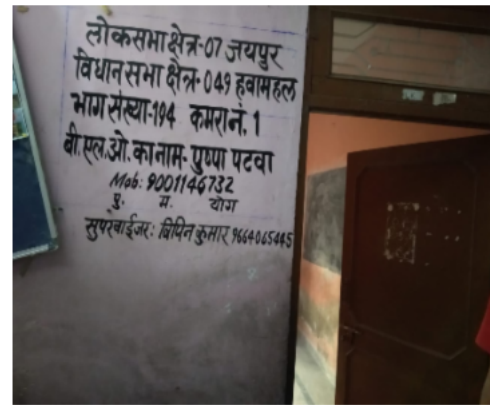 लोकसभा क्षेत्र-07 जयपुर
विधान सभा क्षेत्र-049 हवामहल
भाग संख्या-194 कमरा नं. 1
बी.एल.ओ. का नाम- पुष्पा पटवा
Mob: 9001146732
पु. म. योग
सुपरवाईजर: विपिन कुमार 9664065445